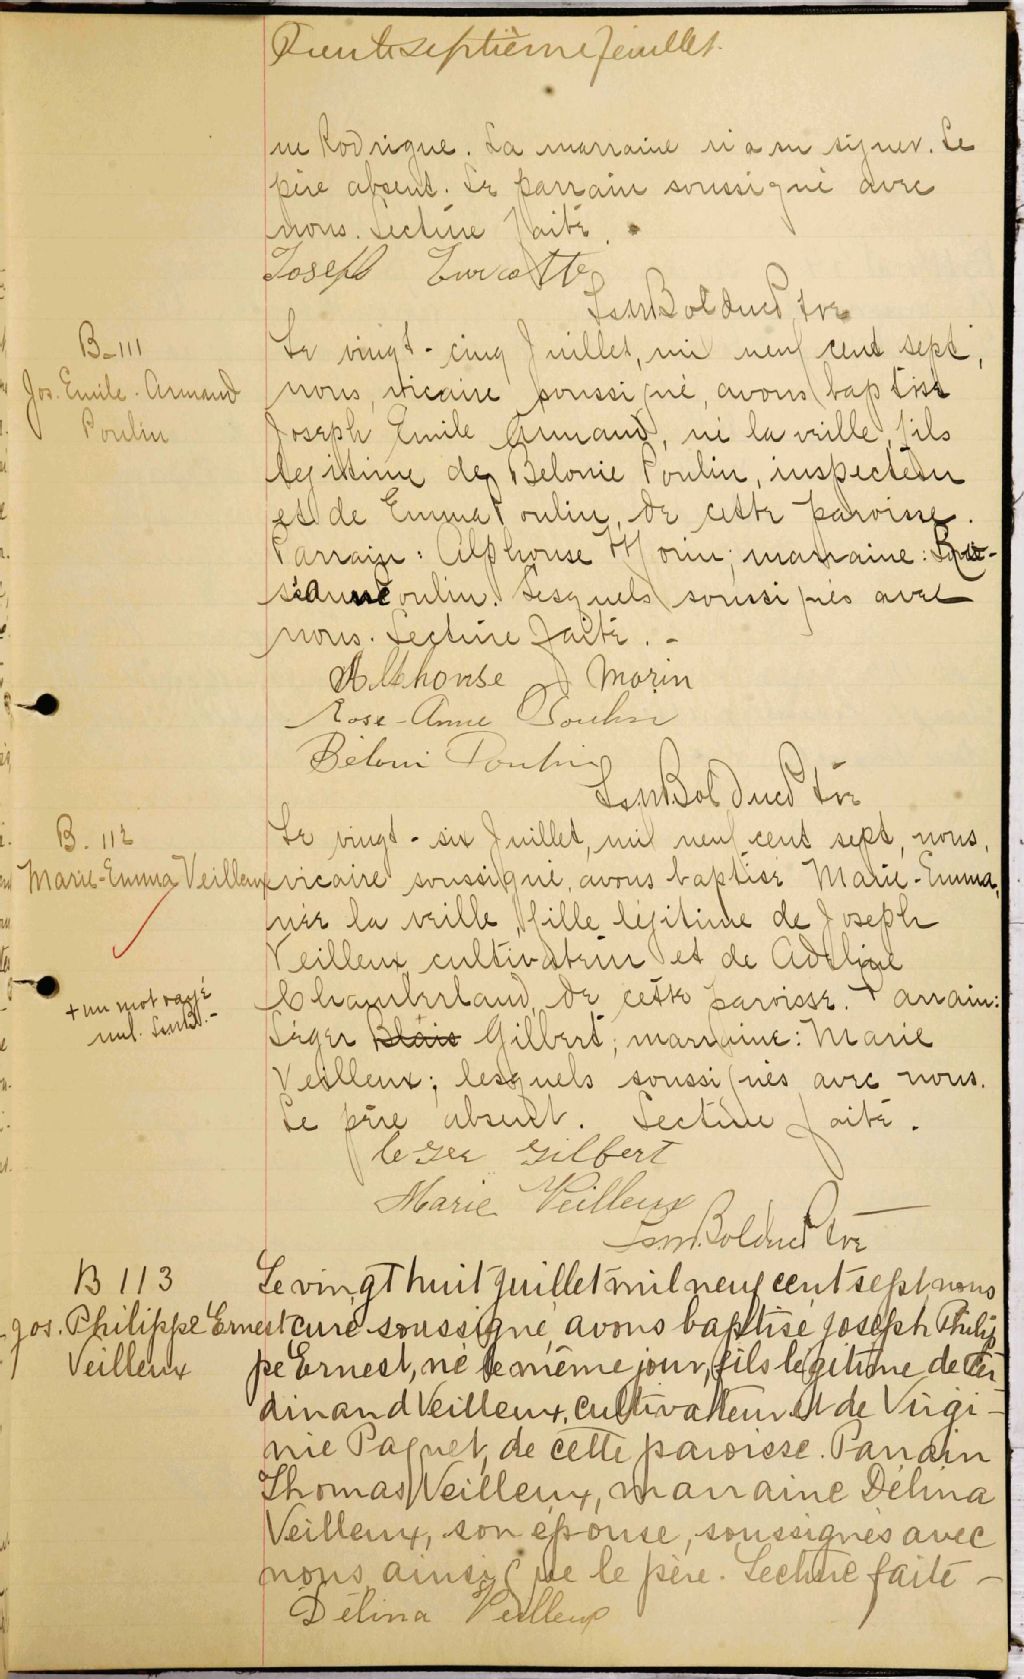 Trente septième feuillet.
ne Rodrigue. La marraine n'a su signer. Le
père absent. Le parrain soussigné avec
nous. Lecture faite.
Joseph Turcotte
Bolduc Ptre
B-111
Jos. Emile-Armand
Poulin
Le vingt-cinq Juillet, mil neuf cent sept,
nous, vicaire soussigné, avons baptisé
Joseph Emile Armand, né la veille, fils
légitime de Belonie Poulin, inspecteur
et de Emma Poulin, de cette paroisse.
Parrain: Alphonse Morin; marraine:
Poulin. Lesquels soussignés avec
nous. Lecture faite. -
Alphonse Morin
Rose-Anne Poulin
Béloni Poulin
Bolduc Ptre
B. 112
Marie-Emma Veilleux
Le vingt-six Juillet, mil neuf cent sept, nous,
vicaire soussigné, avons baptisé Marie-Emma,
née la veille, fille légitime de Joseph
Veilleux cultivateur et de Adeline
Chamberland, de cette paroisse. Parrain:
+ un mot rayé
nul.
Léger Blais Gilbert; marraine: Marie
Veilleux; lesquels soussignés avec nous.
Le père absent. Lecture faite.
leger gilbert
Marie Veilleux
Bolduc Ptre
B 113
Jos. Philippe Ernest
Veilleux
Le vingt huit juillet mil neuf cent sept nous
curé soussigné avons baptisé Joseph Philip
pe Ernest, né le même jour, fils légitime de Fer
dinand Veilleux, cultivateur et de Virgi-
nie Paquet, de cette paroisse. Parrain
Thomas Veilleux, marraine Délina
Veilleux, son épouse, soussignés avec
nous ainsi que le père. Lecture faite -
Délina Veilleux